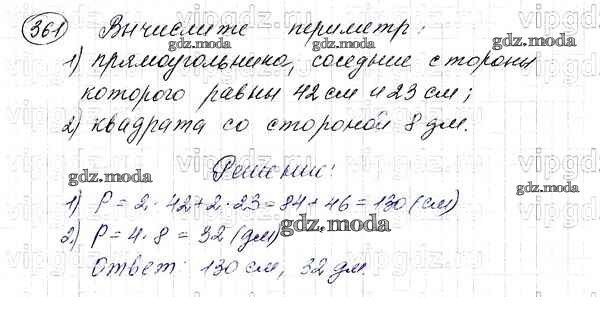 361 Вычислите периметр:
1) прямоугольника, соседние стороны
которого равны 42 см и 23 см;
2) квадрата со стороной 8 дм.
Решение:
1) P = 2 · 42 + 2 · 23 = 84 + 46 = 130 (см)
2) P = 4 · 8 = 32 (дм)
Ответ: 130 см, 32 дм.
gdz.moda
gdz.moda
gdz.moda
gdz.moda
gdz.moda
gdz.moda
gdz.moda
gdz.moda